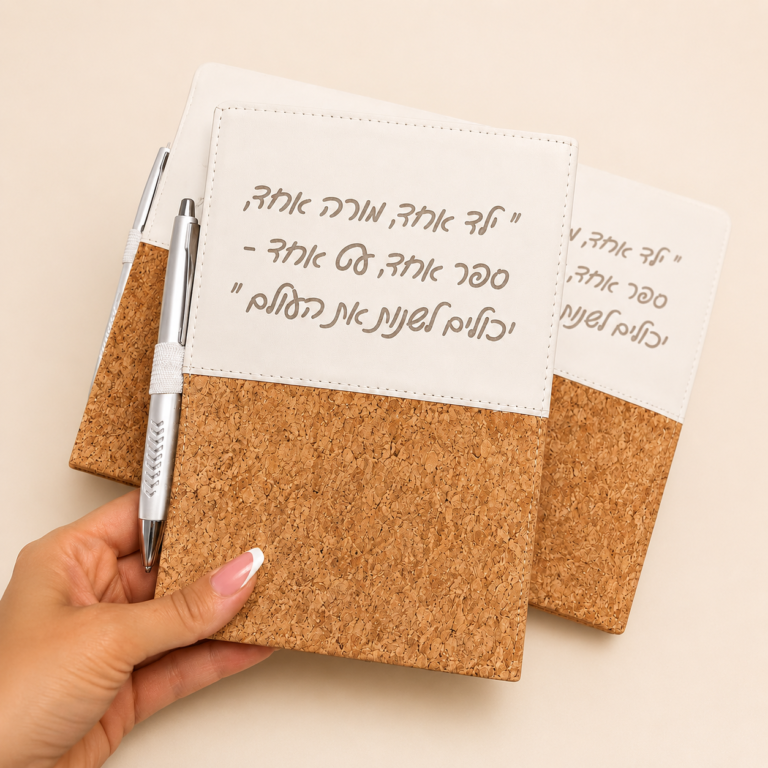 " ילד אחד, מורה אחד,
ספר אחד, עט אחד -
יכולים לשנות את העולם "
" ילד אחד,
ספר אחד,
יכולים לשנות